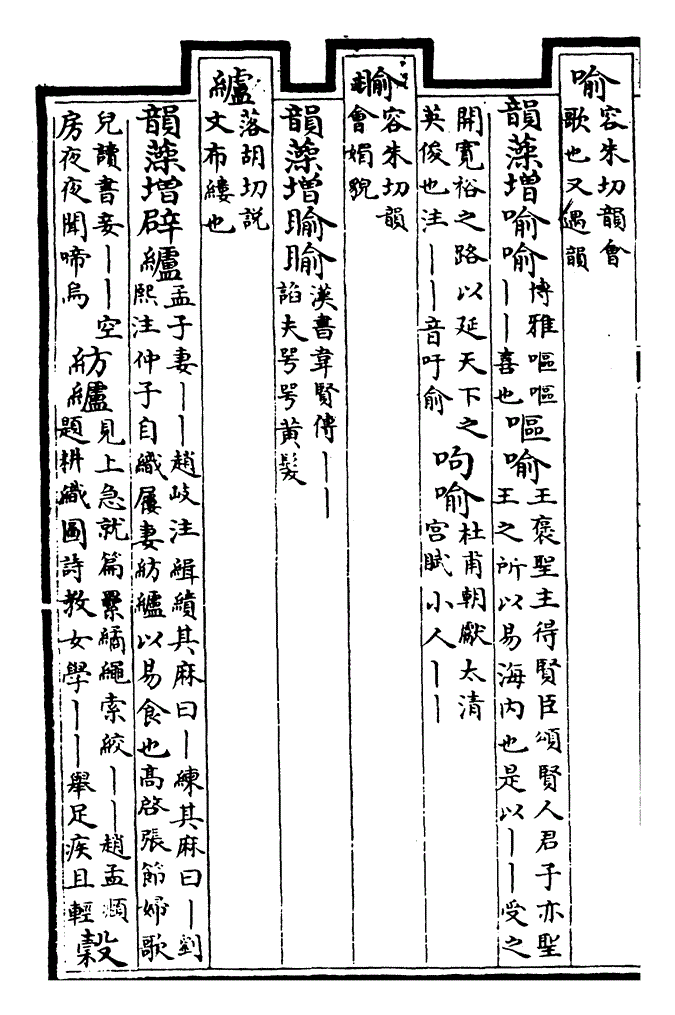 喻
容朱切韻會
歌也又遇韻
韻藻增喻喻
博雅嘔嘔
丨丨喜也
嘔喻
王褒聖主得賢臣頌賢人君子亦聖
王之所以易海内也是以丨丨受之
開寛裕之路以延天下之
英俊也注丨丨音吁俞
呴喻
杜甫朝獻太清
宮賦小人丨丨
㬰
容朱切韻
會媚貌
韻藻增睮睮
漢書韋賢傳丨丨
諂夫咢咢黄髮
纑
落胡切説
文布縷也
韻藻增辟纑
孟子妻丨丨趙岐注緝績其麻曰丨練其麻曰丨劉
熙注仲子自織屨妻紡纑以易食也高啓張節婦歌
兒讀書妾丨丨空
房夜夜聞啼烏
紡纑
見上急就篇纍繘繩索絞丨丨趙孟頫
題耕織圖詩教女學丨丨舉足疾且輕
縠